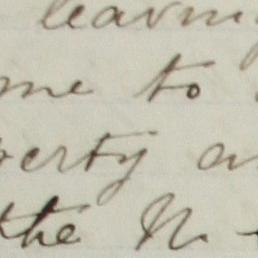 learn
me to
erty a
the N.